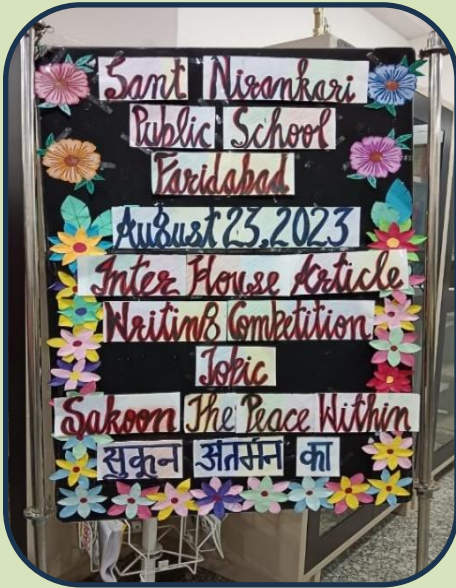 Sant Nirankari
Public School
Faridabad
August 23, 2023
Inter House Article
Writing Competition
Topic
Sakoon The Peace Within
सुकून अंतर्मन का